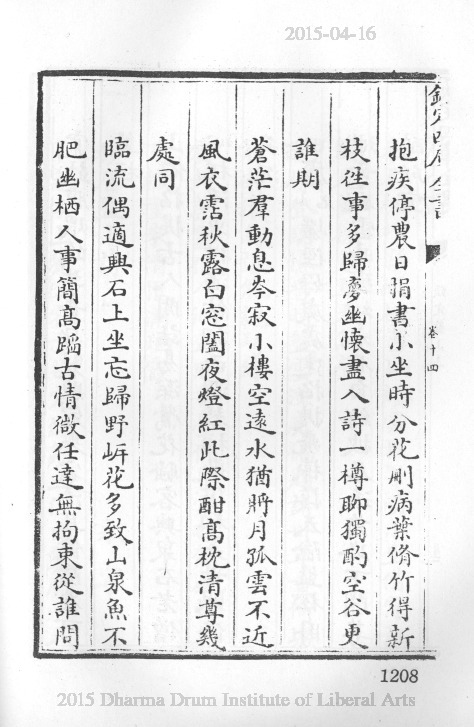 2015-04-16
欽定四庫全書
卷十四
抱疾停農日捐書小坐時分花刪病葉脩竹得新
枝徃事多歸夢幽懷盡入詩一樽聊獨酌空谷更
誰期
蒼茫羣動息岑寂小樓空遠水猶將月孤雲不近
風衣霑秋露白窓闔夜燈紅此際酣髙枕清尊幾
處同
臨流偶適興石上坐忘歸野岍花多致山泉魚不
肥幽栖人事簡髙蹈古情微任達無拘束從誰問
1208
2015 Dharma Drum Institute of Liberal Arts